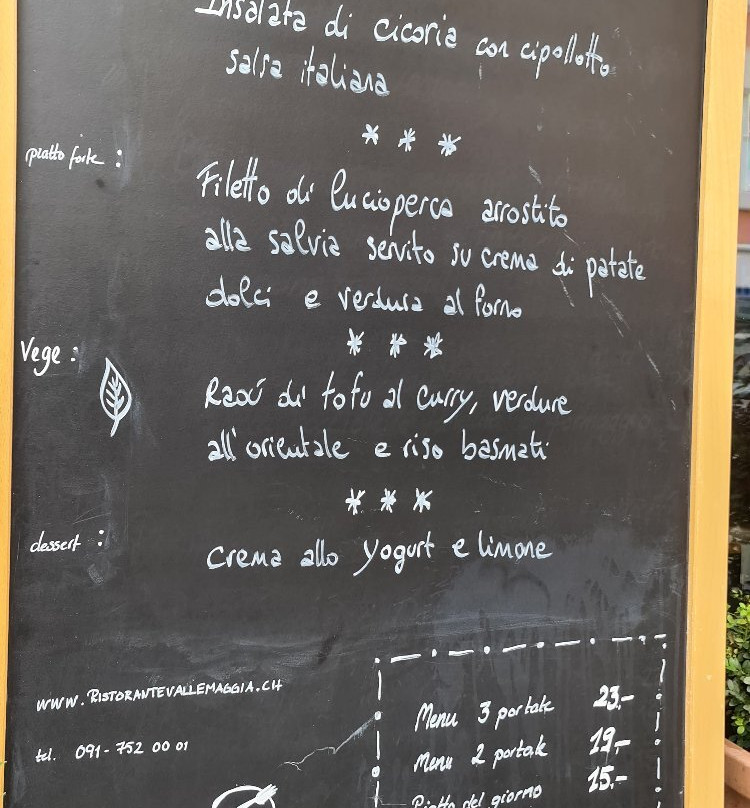 Insalata di cicoria con cipollotto
salsa italiana
* * *
piatto forte :
Filetto di lucioperca arrostito
alla salvia servito su crema di patate
dolci e verdura al forno
* * *
Vege :
Ragú di tofu al curry, verdure
all'orientale e riso basmati
* * *
dessert :
Crema allo yogurt e limone
WWW.RISTORANTEVALLEMAGGIA.CH
tel. 091-752 00 01
Menu 3 portate 23.-
Menu 2 portate 19.-
Piatto del giorno 15.-